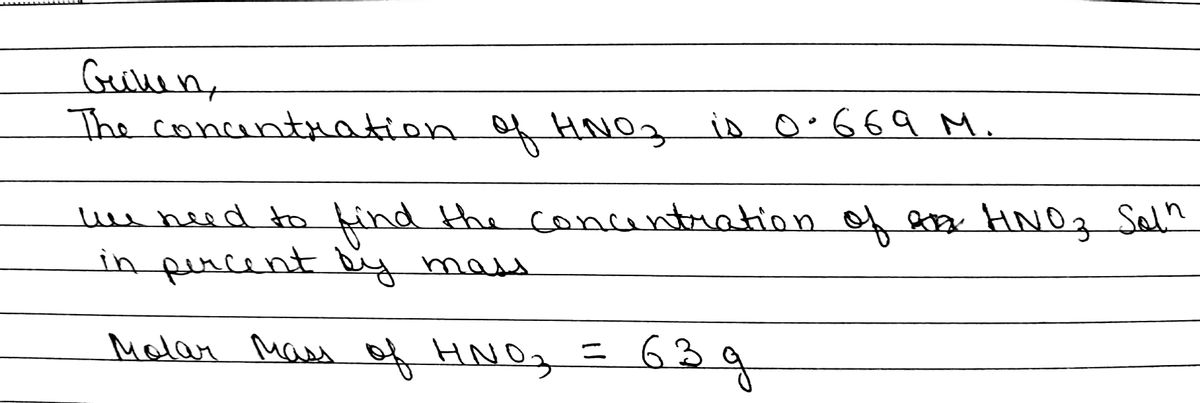 Given,
The concentration of HNO3 is 0.669 M.
we need to find the concentration of HNO3 Solⁿ
in percent by mass
Molar Mass of HNO3 = 63 g